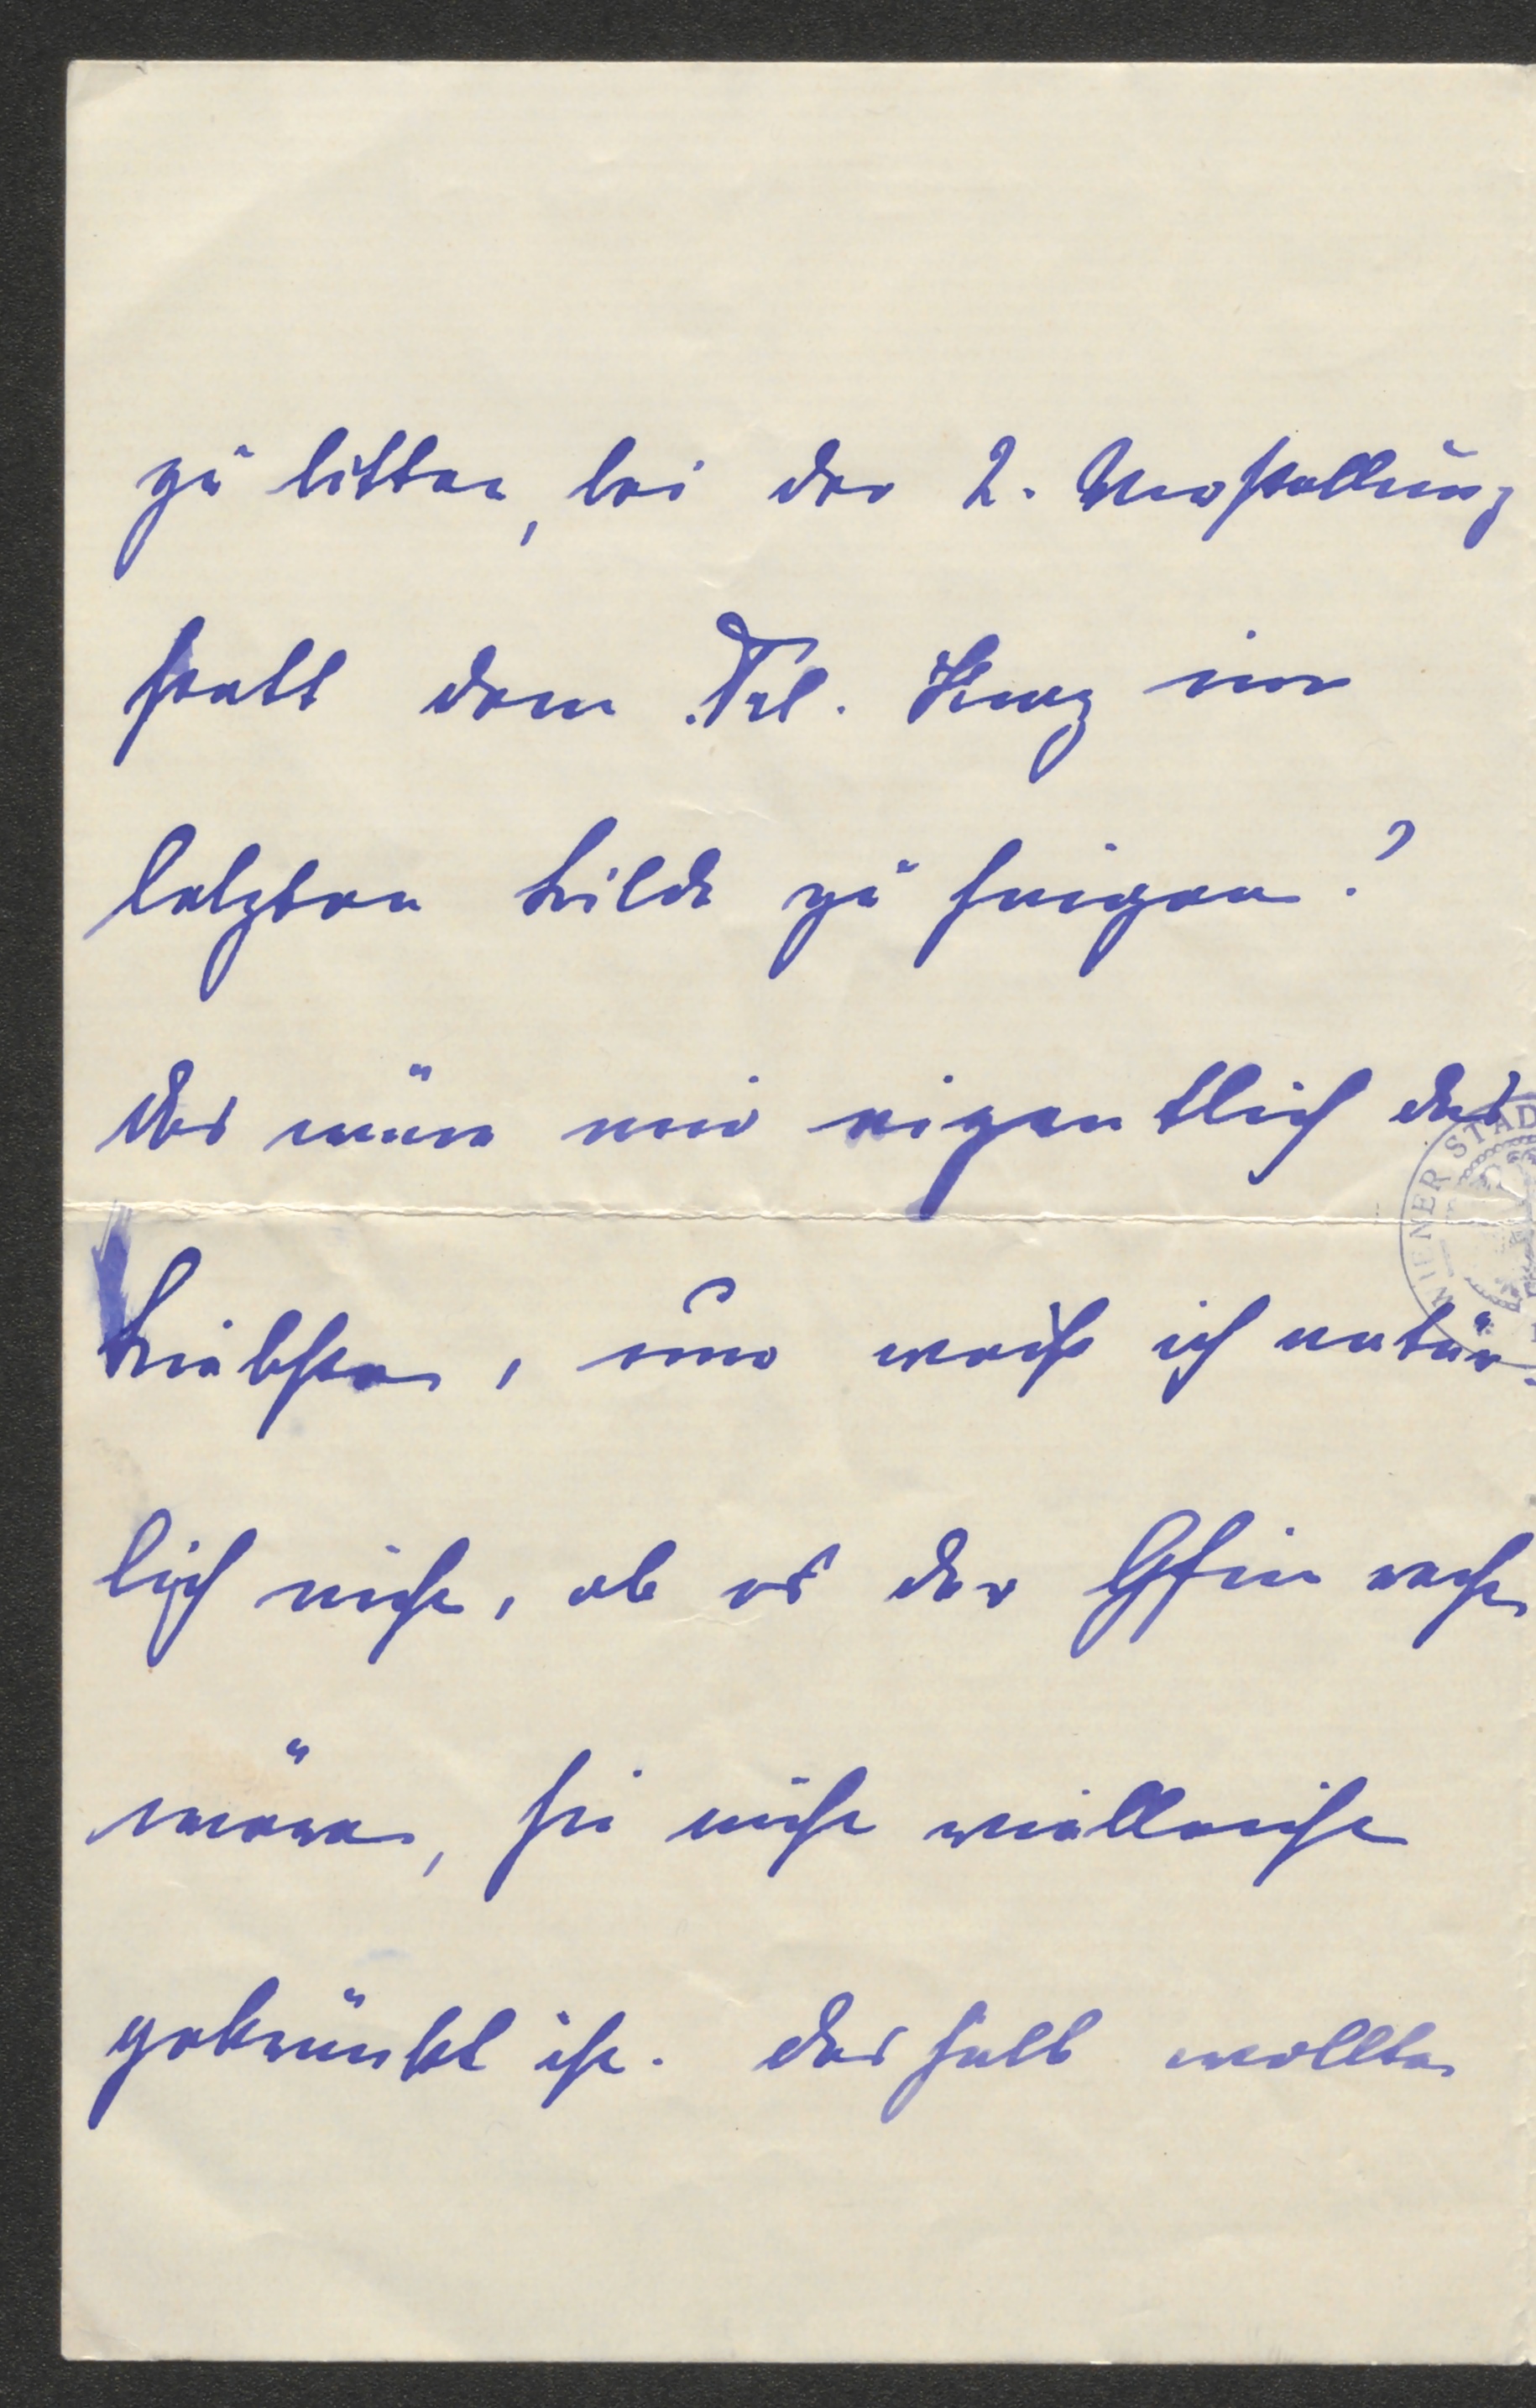 zu bitten, bei der 2. Vorstellung
statt dem Frl. Kurz im
letzten Bilde zu singen?
Das wäre mir eigentlich das
Liebste, nur weiß ich natür-
lich nicht, ob es der Gfin recht
wäre, sie nicht vielleicht
gekränkt ist. Deshalb wollte
WIENER STAD